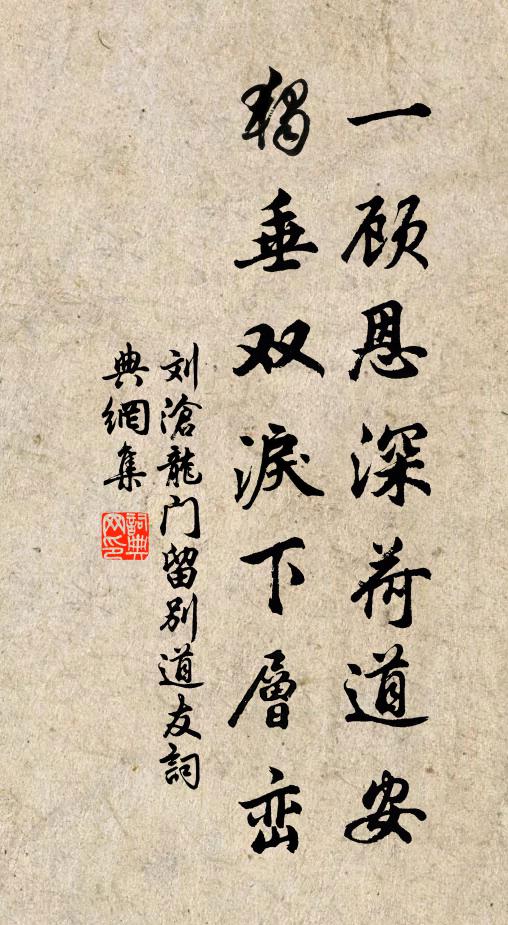 一顾恩深荷道安
獨垂双淚下層峦
刘滄龍门留别道友詞
典網集
詞典网印